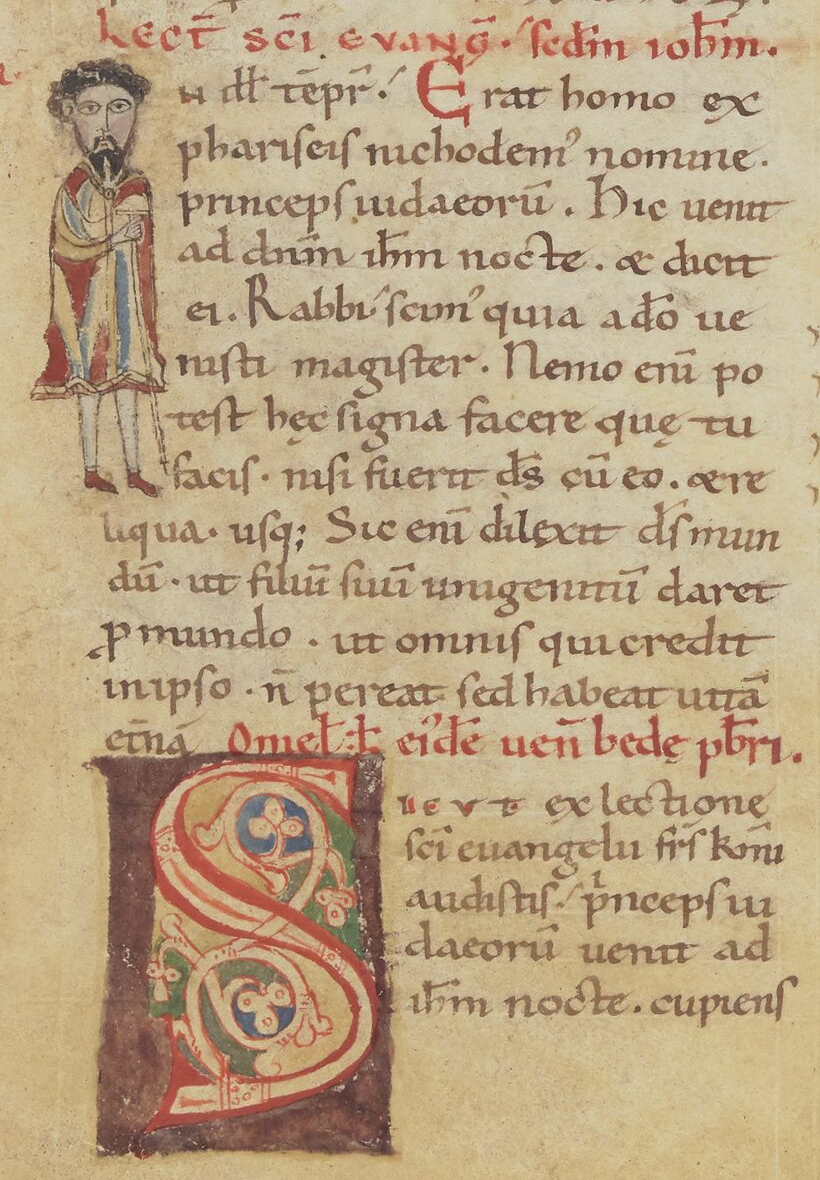 Lect̄ sc̄i evanḡ. scd̄m ioh̄m.
N dīl̄ tēpr̄. Erat homo ex
phariseis nichodem᾿ nomine.
princeps iudaeorū. Hic uenit
ad dn̄m ih̄m nocte. & dicit
ei. Rabbi scim᾿ quia a dō ue
nisti magister. Nemo enī po
test hęc signa facere quę tu
facis. nisi fuerit ds̄ cū eo. & re
liqua. usq; Sic enī dilexit ds̄ mun
dū. ut filiū suū unigenitū daret
ꝓ mundo. ut omnis qui credit
in ipso. n̄ pereat sed habeat uitā
et̄nā Omel̄. eiᷤdē uen̄ bedę pb̄ri.
SICVT ex lectione
sc̄i euangelii fr̄s k̄mi
audistis. pⁱnceps iu
daeorū uenit ad
ih̄m nocte. cupiens